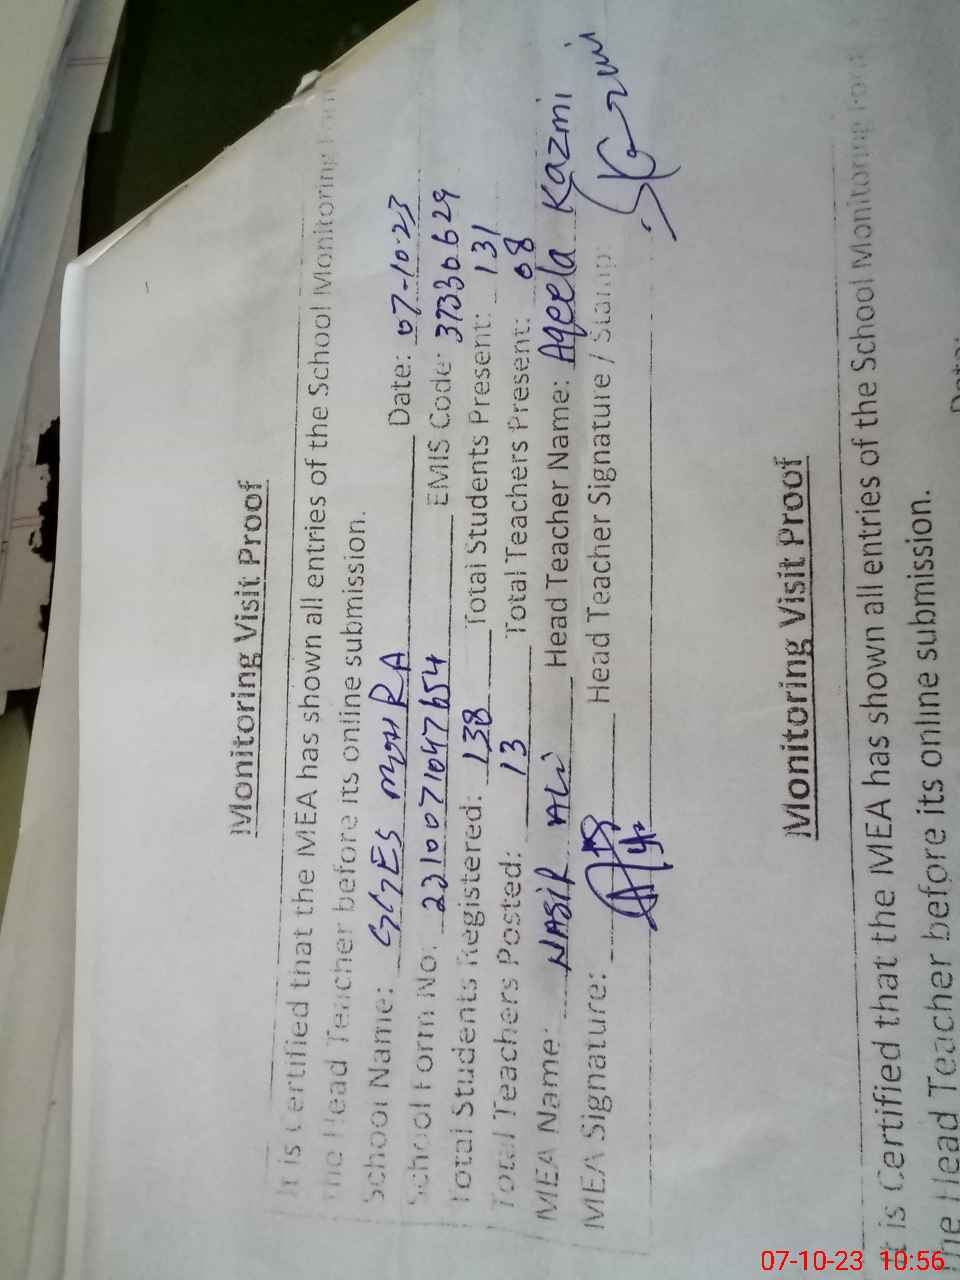 Monitoring Visit Proof
It is Certified that the MEA has shown all entries of the School Monitoring Form
the Head Teacher before its online submission.
School Name: GGES MOHRA Date: 07-10-23
School Form No: 2310071047654 EMIS Code: 37330629
Total Students Registered: 138 Total Students Present: 131
Total Teachers Posted: 13 Total Teachers Present: 08
MEA Name: NASIR ALI Head Teacher Name: Aqeela Kazmi
MEA Signature: Head Teacher Signature / Stamp:
Monitoring Visit Proof
It is Certified that the MEA has shown all entries of the School Monitoring Form
the Head Teacher before its online submission.
Date:
07-10-23 10:56